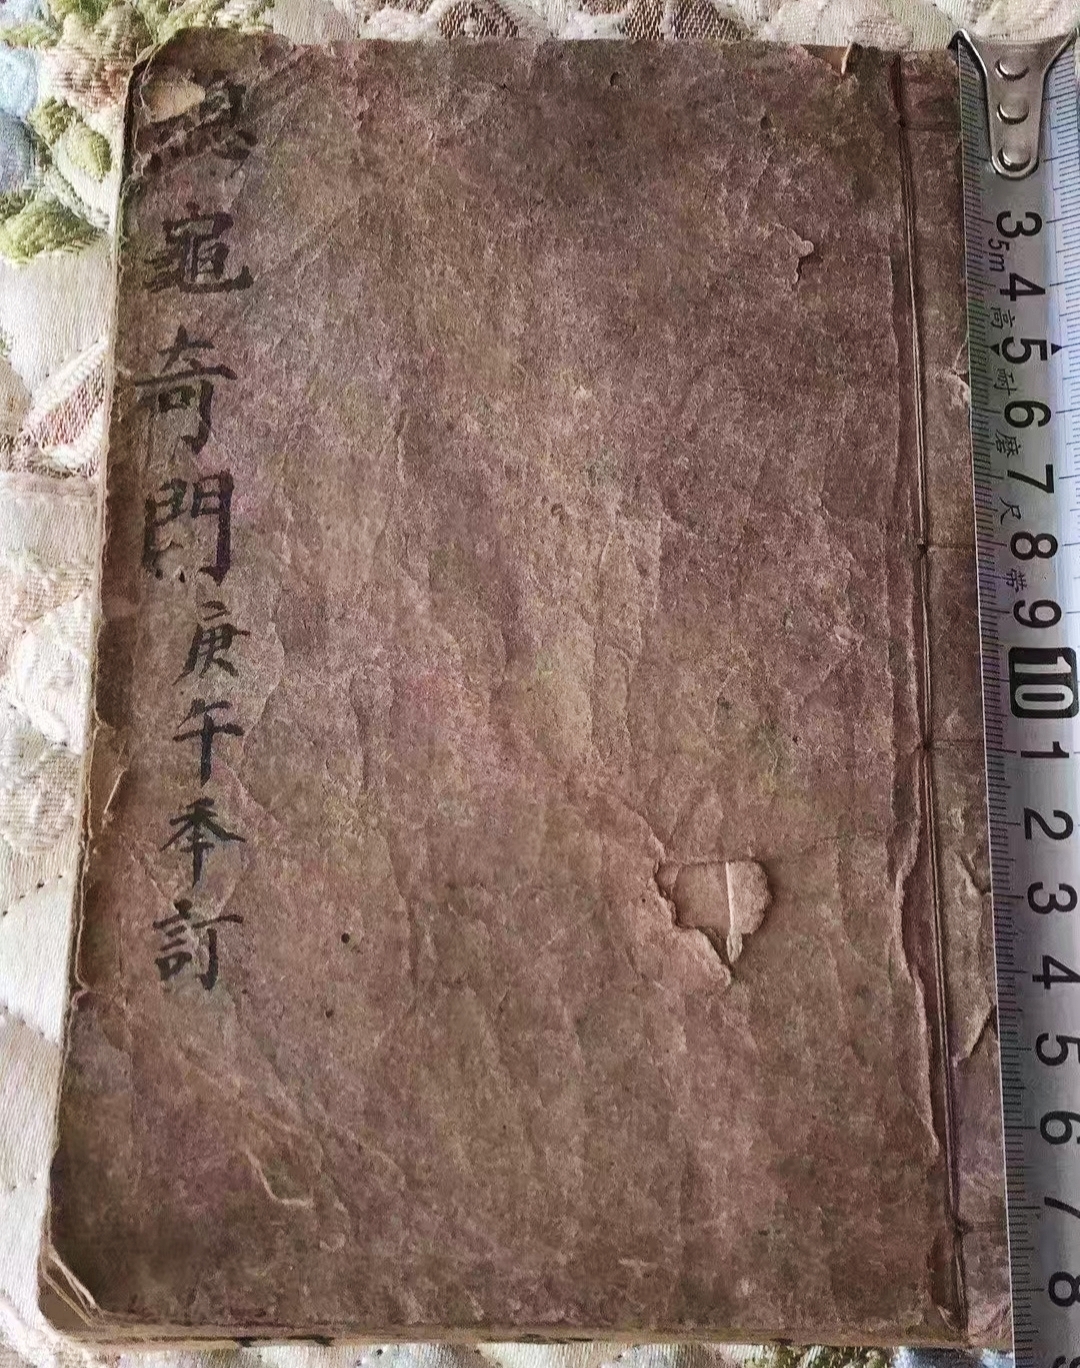 龜奇門庚午秊訂
3 4 5 6 7 8 9 10 1 2 3 4 5 6 7 8
5m 高耐磨尺带